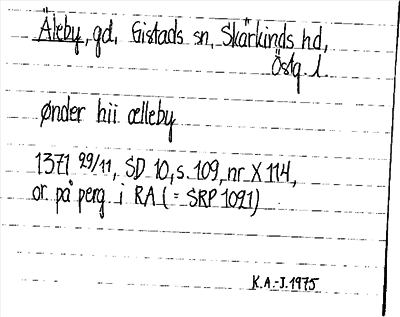 Äleby, gd, Gistads sn, Skärkinds hd,
Östg. l.
ønder hii ælleby
1371 29/11, SD 10, s. 109, nr X 114,
or på perg. i RA (= SRP 1091)
K.A.-J. 1975